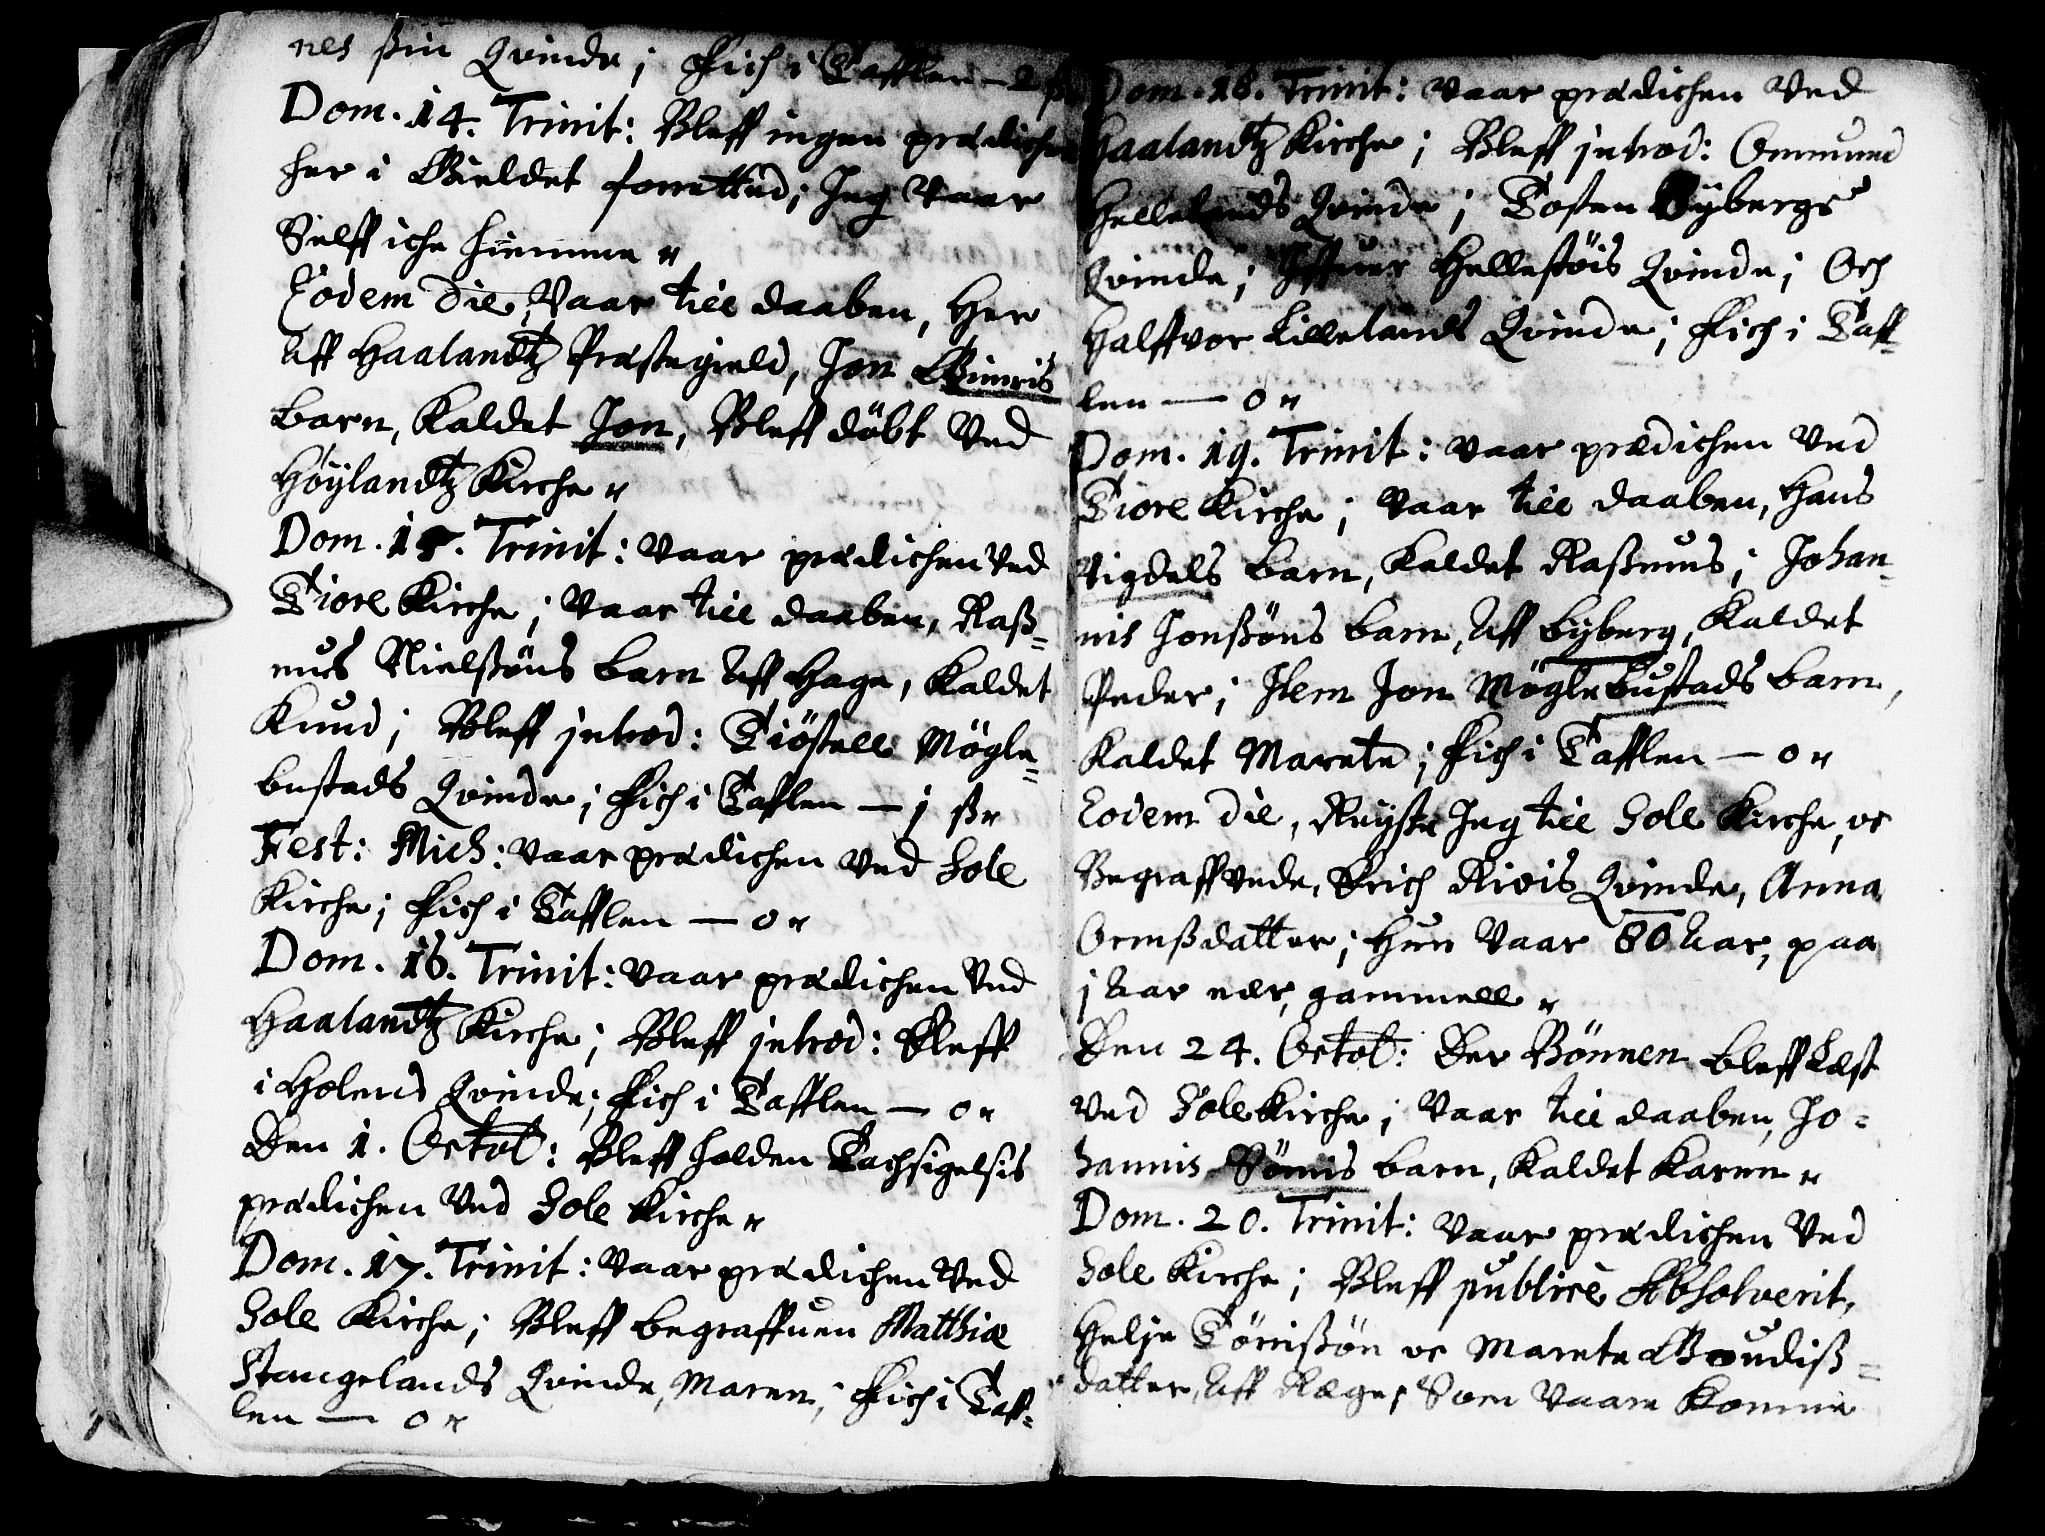 nes ßin Qvinde; Fich i Tafflen — 2 ß
Dom. 14. Trinit: Bleff ingen prædichen
her i Gieldet forretted; Jeg Vaar
Sielff iche hiemme
Eodem Die, Vaar till daaben, Her
Aff Haalandtz Præstegield, Jon Gimris
barn, Kaldet Jon, Bleff döbt Ved
Höylandtz Kirche
Dom. 15. Trinit: Vaar prædichen Ved
Tiore Kirche; Vaar till daaben, Raß=
mus Nielßöns barn Aff Hage, Kaldet
Knud; Bleff jntrod: Tiöstell Mögle=
bustads Qvinde; Fich i Tafflen — j ß
Fest: Mich: Vaar prædichen Ved Sole
Kirche; Fich i Tafflen — o
Dom. 16. Trinit: Vaar prædichen Ved
Haalandtz Kirche; Bleff jntrod:
i Holend Qvinde; Fich i Tafflen — o
Den 1. Octob: Bleff holden Tachsigelsis
prædichen Ved Sole Kirche
Dom. 17. Trinit: Vaar prædichen Ved
Sole Kirche; Bleff begraffuen Matthiæ
Stangelands Qvinde, Maren; Fich i Taff=
len — o
Dom. 18. Trinit: Vaar prædichen Ved
Haalandtz Kirche; Bleff jntrod: Ommund
Hellelands Qvinde; Tosten Bybergs
Qvinde; Iffuer Hellestöis Qvinde; Och
Halffvor Lillelands Qvinde; Fich i Taff=
len — o
Dom. 19. Trinit: Vaar prædichen Ved
Tiore Kirche; Vaar till daaben, Hans
Vigdels barn, Kaldet Raßmus; Johan=
nis Jonßöns barn, Aff Byberg, Kaldet
Peder; Item Jon Möglebustads barn,
Kaldet Marete; Fich i Tafflen — o
Eodem die, Reyste Jeg till Sole Kirche, oc
Begraffvede, Erich Rivis Qvinde, Anna
Ormßdatter; Hun Vaar 80 Aar, paa
j Aar nær, gammell
Den 24. Octob: Der Bönnen bleff Læst
Ved Sole Kirche; Vaar till daaben, Jo=
hannis Sömis barn, Kaldet Karen
Dom. 20. Trinit: Vaar prædichen Ved
Sole Kirche; Bleff publicè Absolverit,
Helje Törrißön oc Marete Goudiß=
datter, Aff Ræge, Som Vaare Komne